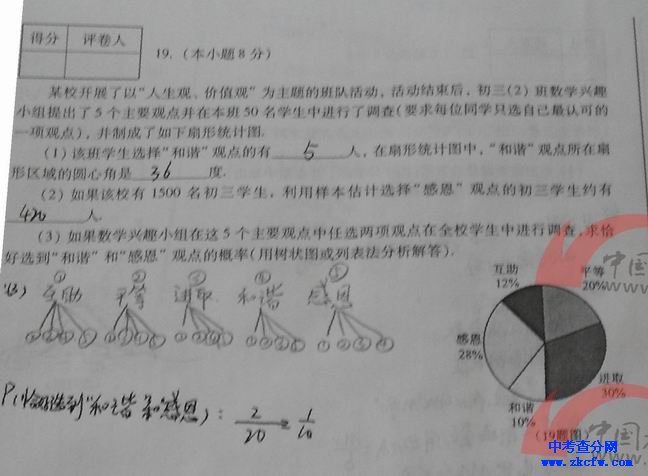 得分 评卷人
19.（本小题8分）
某校开展了以“人生观、价值观”为主题的班队活动，活动结束后，初三(2)班数学兴趣
小组提出了5个主要观点并在本班50名学生中进行了调查(要求每位同学只选自己最认可的
一项观点)，并制成了如下扇形统计图.
(1) 该班学生选择“和谐”观点的有 5 人，在扇形统计图中，“和谐”观点所在扇
形区域的圆心角是 36 度.
(2) 如果该校有1500名初三学生，利用样本估计选择“感恩”观点的初三学生约有
420 人.
(3) 如果数学兴趣小组在这5个主要观点中任选两项观点在全校学生中进行调查,求恰
好选到“和谐”和“感恩”观点的概率(用树状图或列表法分析解答).
① ② ③ ④ ⑤
(3) 互助 平等 进取 和谐 感恩
P(恰好选到“和谐和感恩”): 2/20 = 1/10
互助 12%
平等 20%
感恩 28%
进取 30%
和谐 10%
(19题图)
中国
www.
中国
www.
中考查分网
www.zkcfw.com